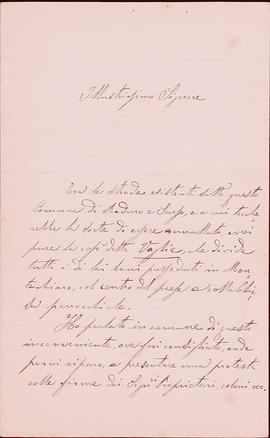 Illustrissimo Signore
Tra le strade esistenti dette questo
Comune di e a cui
la sorte di essere annullata avvi
pure la così detta Vaglie, che divide
tutti i di lei beni posseduti in Mon-
techiaro, col centro del paese e colla Chie-
sa parrocchiale.
Ho parlato in comune di questo
inconveniente ove fui consigliato, onde
porvi riparo, a presentare una protesta
colle firme dei Sig.ri Proprietari, coloni ecc.